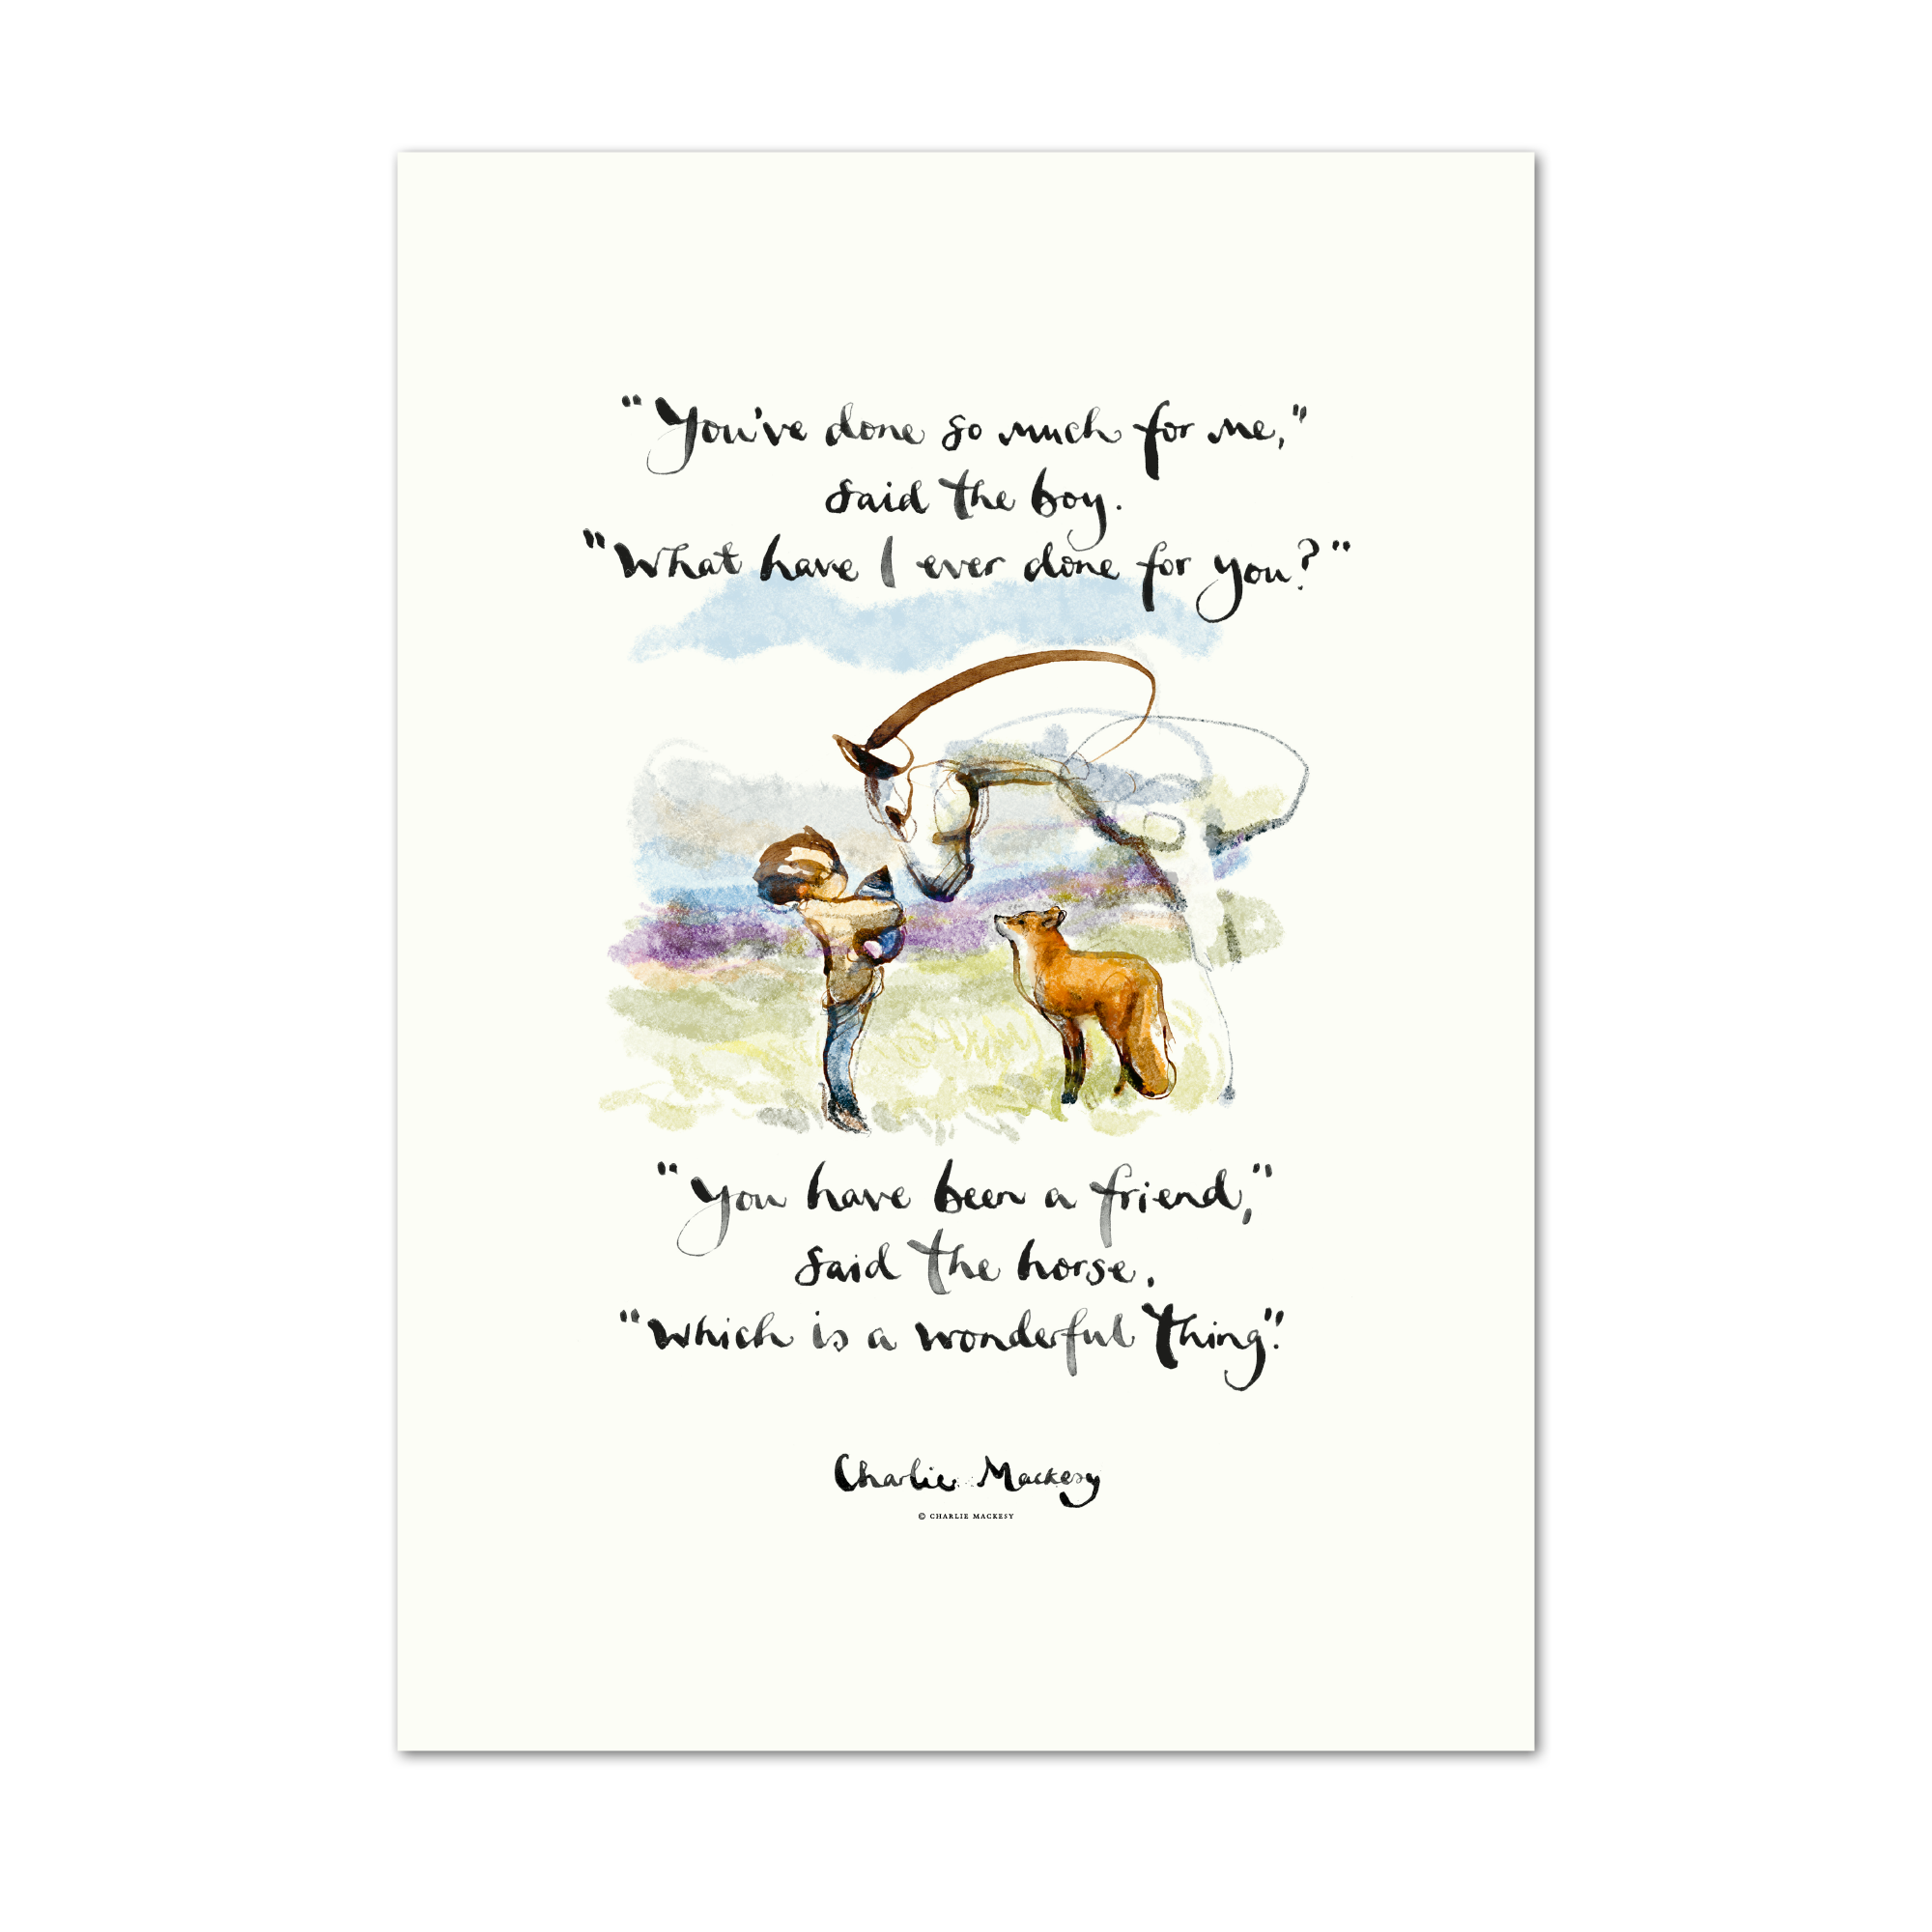 "You've done so much for me,"
said the boy.
"What have I ever done for you?"
"You have been a friend,"
said the horse.
"Which is a wonderful thing".
Charlie Mackesy
© CHARLIE MACKESY